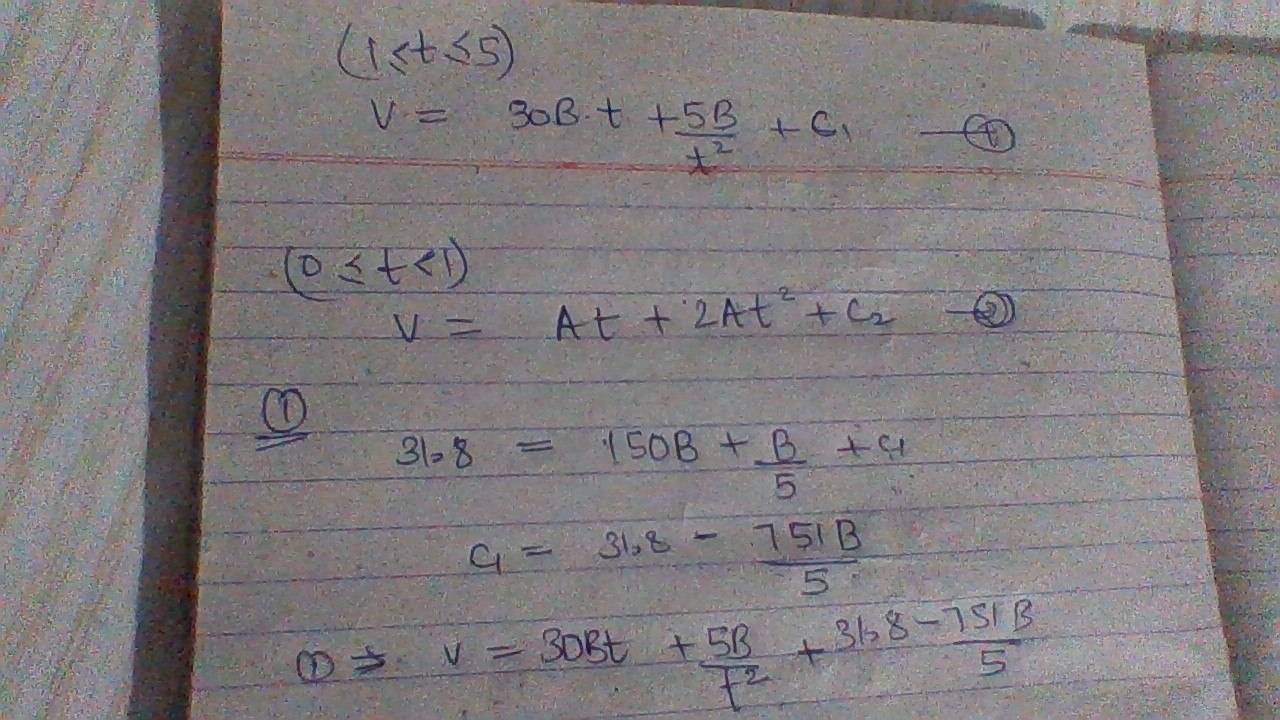 (1≤t≤5)
V = 30B.t + 5B/t² + C₁ —①
(0 ≤ t < 1)
V = At + 2At² + C₂ —②
①
31.8 = 150B + B/5 + C₁
C₁ = 31.8 - 751B/5
① ⇒ V = 30Bt + 5B/t² + 31.8 - 751B/5